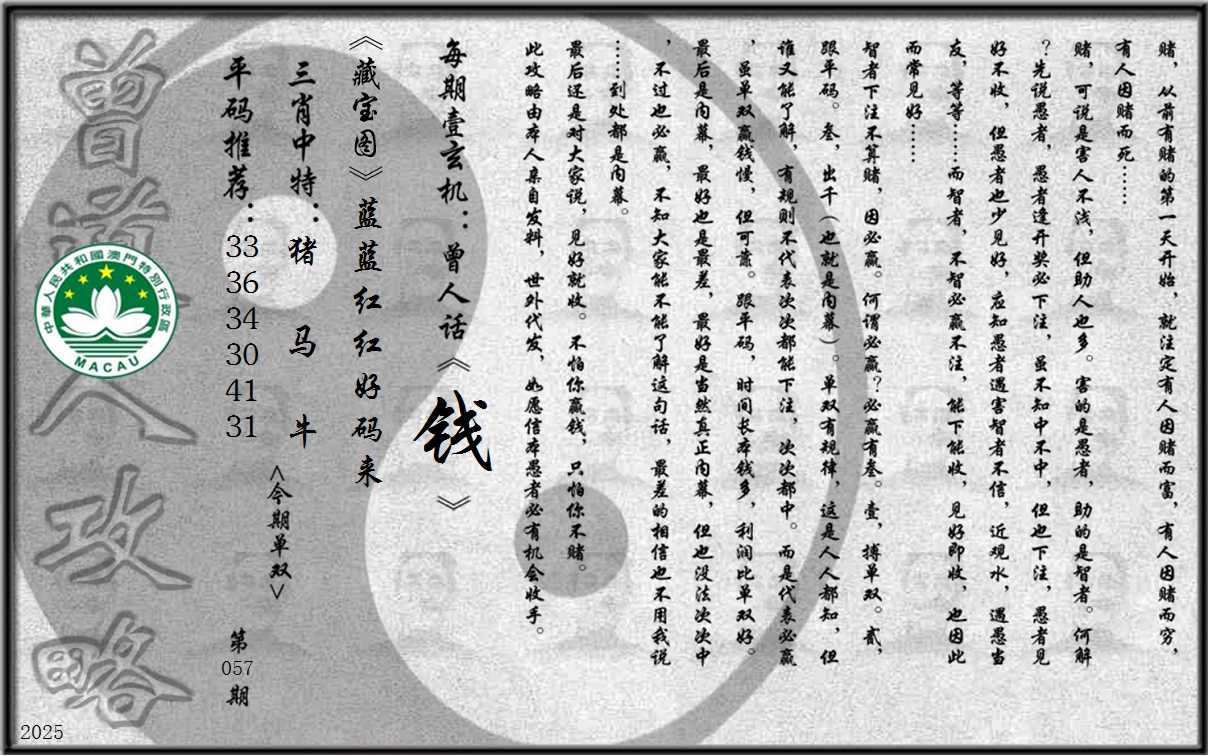 赌，从前有赌的第一天开始，就注定有人因赌而富，有人因赌而穷，
有人因赌而死……
赌，可说是害人不浅，但助人也多。害的是愚者，助的是智者。何解
？先说愚者，愚者逢开奖必下注，虽不知中不中，但也下注，愚者见
好不收，但愚者也少见好，应知愚者遇害智者不信，近观水，遇愚当
友，等等……而智者，不智必赢不注，能下能收，见好即收，也因此
而常见好……
智者下注不算赌，因必赢。何谓必赢？必赢有叁。壹，搏单双。贰，
跟平码。叁，出千（也就是内幕）。单双有规律，这是人人都知，但
谁又能了解，有规则不代表次次都能下注，次次都中。而是代表必赢
，虽单双赢钱慢，但可靠。跟平码，时间长本钱多，利润比单双好。
最后是内幕，最好也是最差，最好是当然真正内幕，但也没法次次中
，不过也必赢，不知大家能不能了解这句话，最差的相信也不用我说
……到处都是内幕。
最后还是对大家说，见好就收。不怕你赢钱，只怕你不赌。
此攻略由本人亲自发料，世外代发，如愿信本愚者必有机会收手。
每期壹玄机：曾人话《钱》
《藏宝图》蓝蓝红红好码来
三肖中特：猪 马 牛
<今期单双>
平码推荐：33 36 34 30 41 31
第057期
曾道人攻略
中華人民共和國澳門特別行政區
MACAU
2025